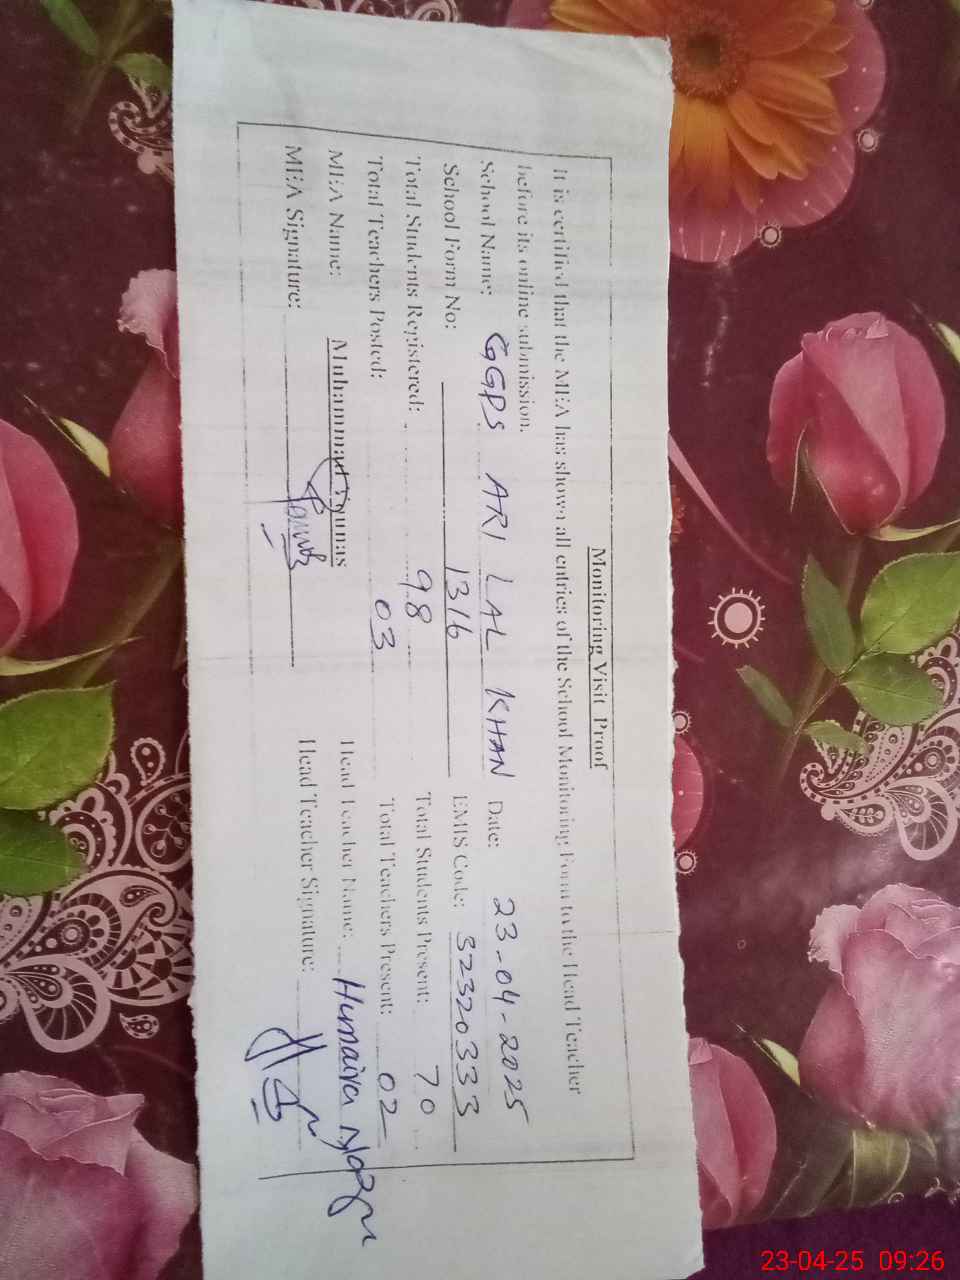 Monitoring Visit Proof
It is certified that the MEA has shown all entries of the School Monitoring Form to the Head Teacher
before its online submission.
School Name: GGPS ARI LAL KHAN Date: 23-04-2025
School Form No: 1316 EMIS Code: 32320333
Total Students Registered: 98 Total Students Present: 70
Total Teachers Posted: 03 Total Teachers Present: 02
MEA Name: Muhammad Younas Head Teacher Name: Humaira
MEA Signature: Head Teacher Signature:
23-04-25 09:26